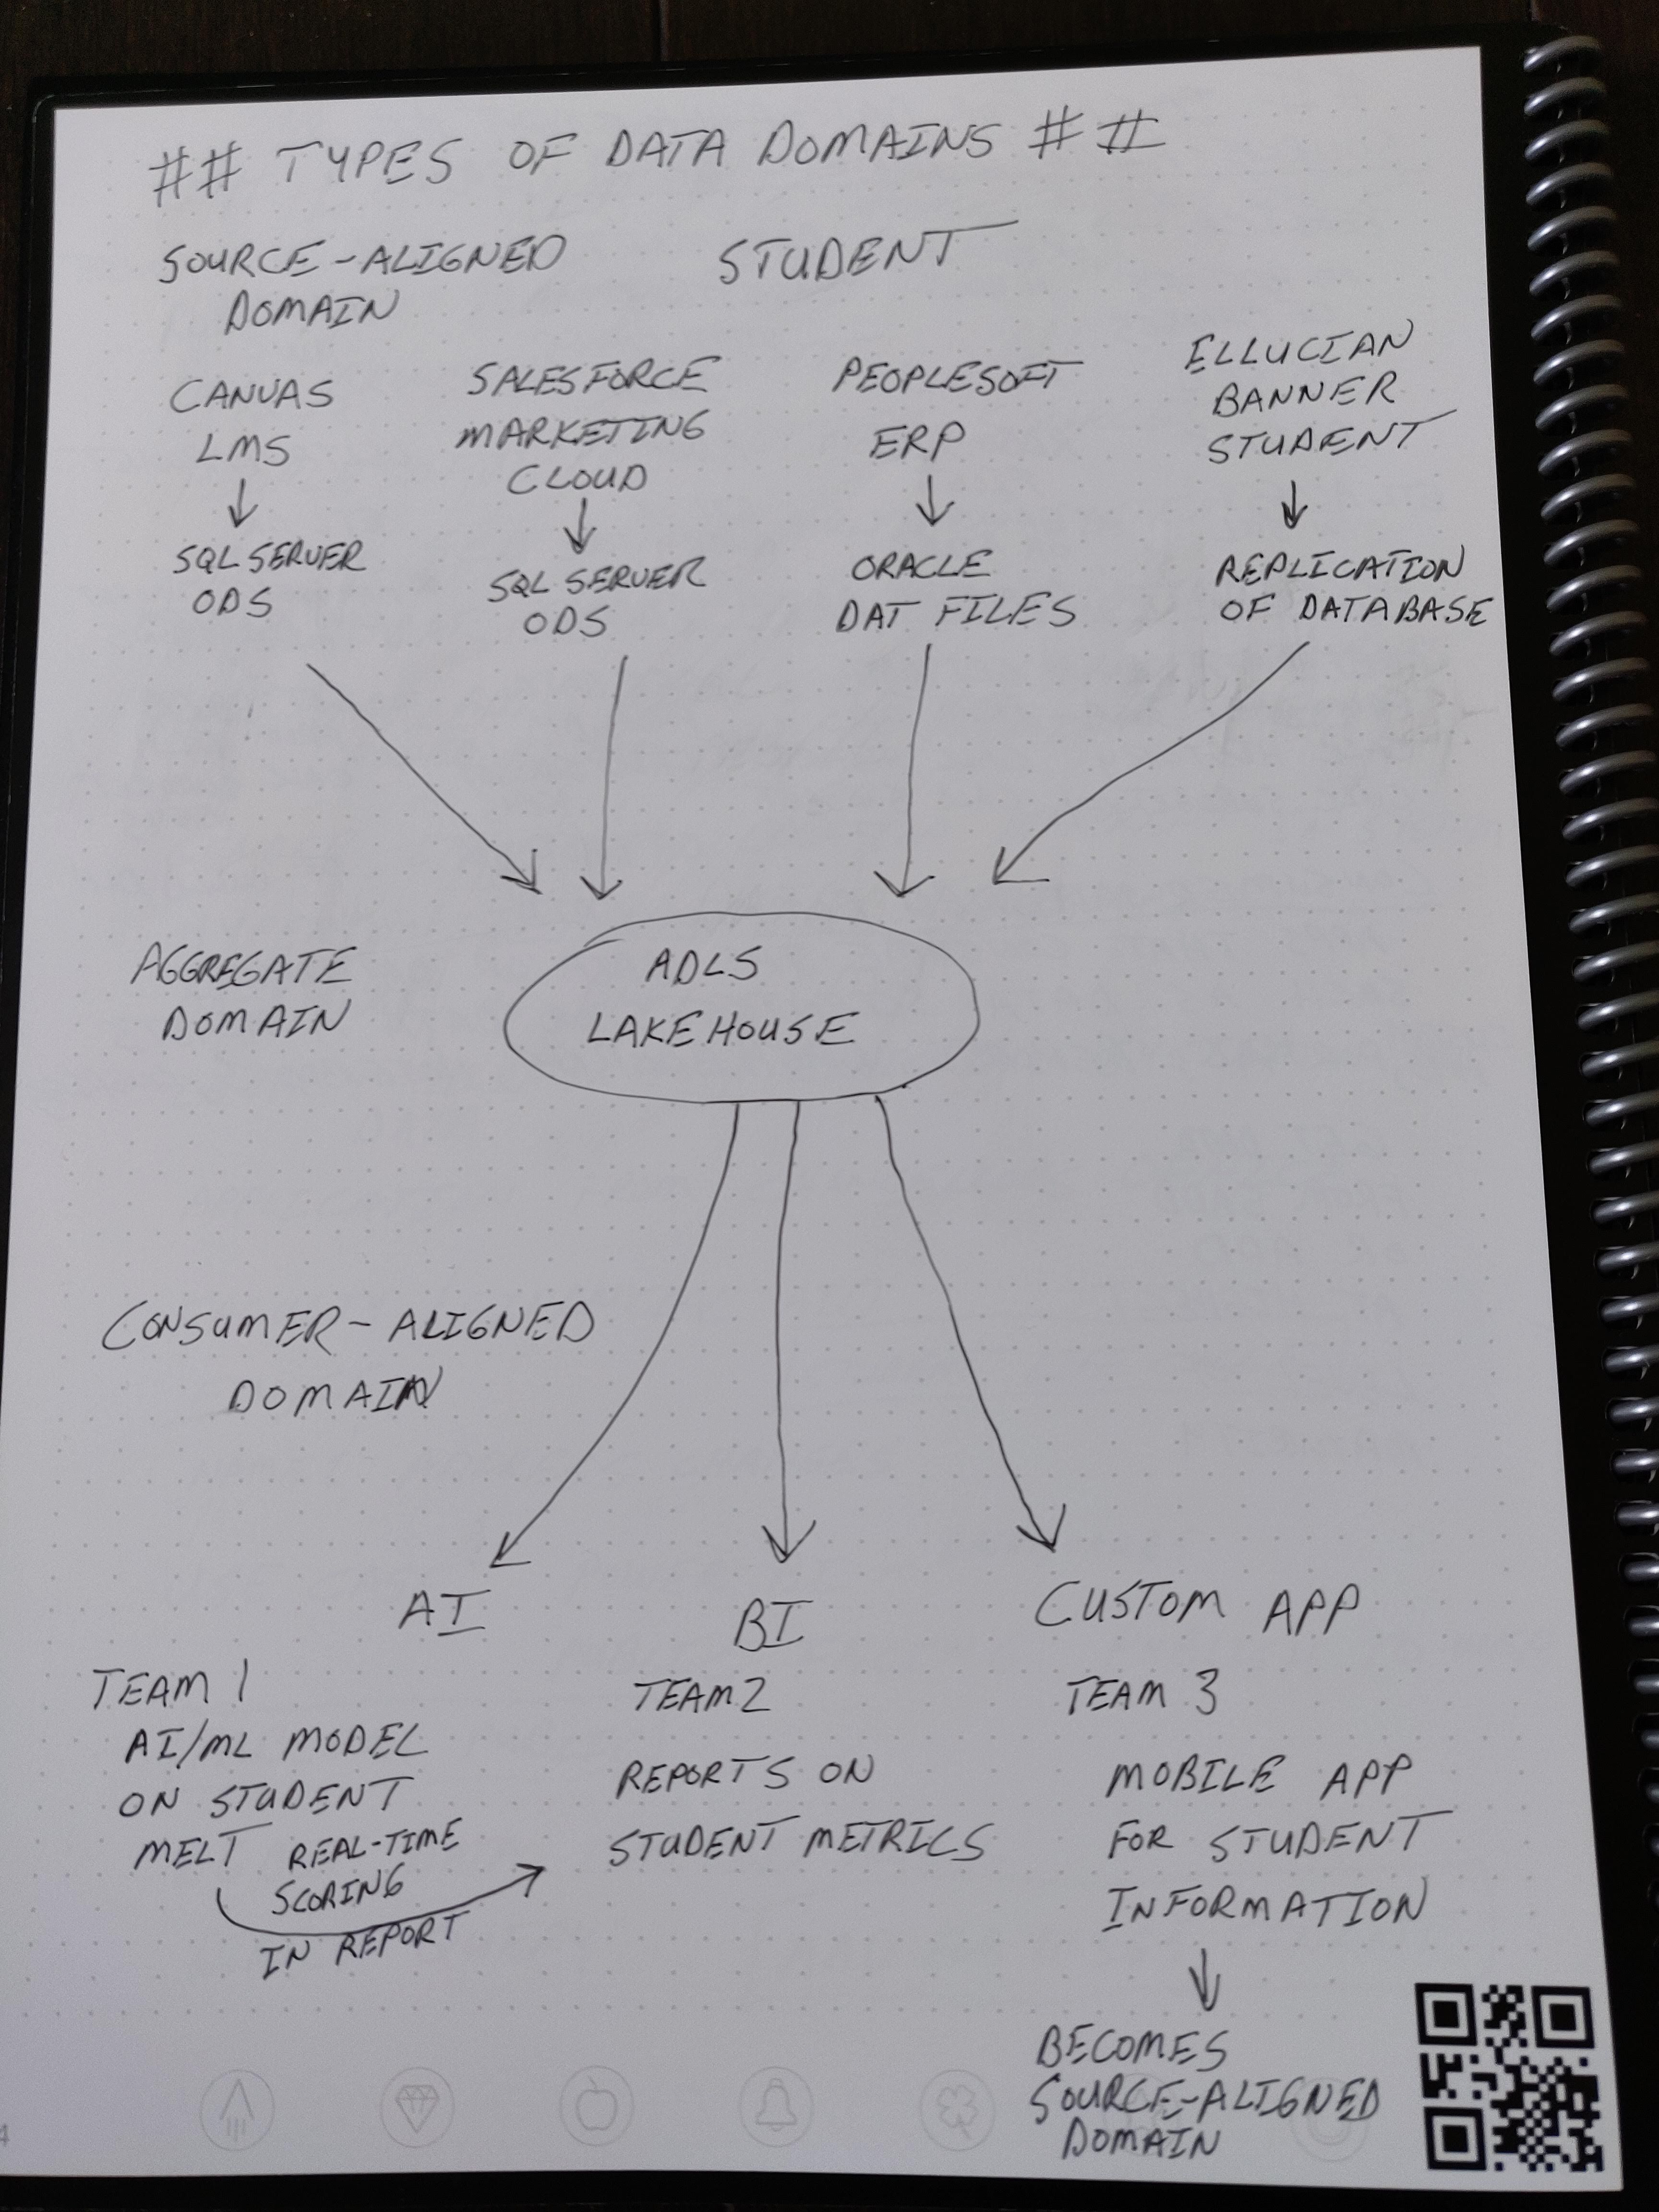 ## TYPES OF DATA DOMAINS ##
SOURCE-ALIGNED
DOMAIN
STUDENT
CANVAS
LMS
↓
SQL SERVER
ODS
SALESFORCE
MARKETING
CLOUD
↓
SQL SERVER
ODS
PEOPLESOFT
ERP
↓
ORACLE
DAT FILES
ELLUCIAN
BANNER
STUDENT
↓
REPLICATION
OF DATABASE
AGGREGATE
DOMAIN
ADLS
LAKEHOUSE
CONSUMER-ALIGNED
DOMAIN
AI
TEAM 1
AI/ML MODEL
ON STUDENT
MELT
REAL-TIME
SCORING
IN REPORT
BI
TEAM 2
REPORTS ON
STUDENT METRICS
CUSTOM APP
TEAM 3
MOBILE APP
FOR STUDENT
INFORMATION
↓
BECOMES
SOURCE-ALIGNED
DOMAIN